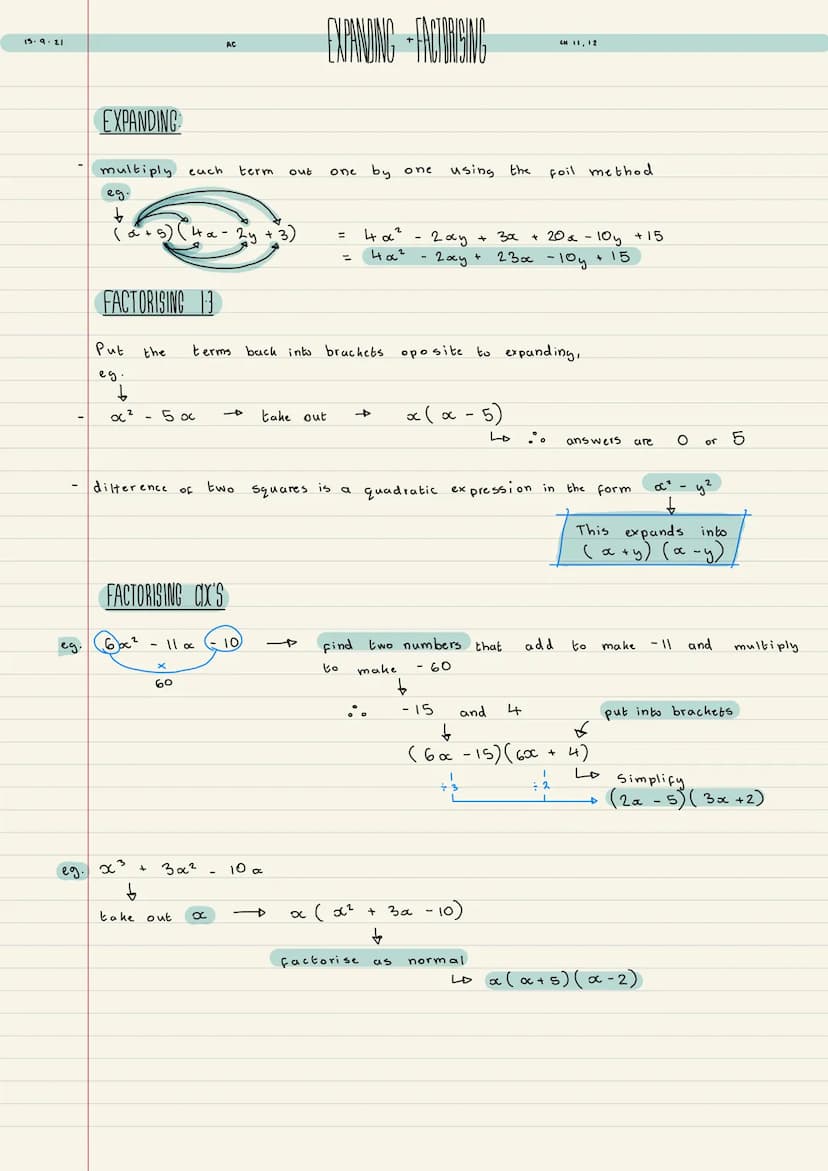 13.9.21 AC EXPANDING + FACTORISING CH 11, 12
EXPANDING:
- multiply each term out one by one using the foil method
eg.
(x + 5)(4x - 2y + 3) = 4x² - 2xy + 3x + 20x - 10y + 15
= 4x² - 2xy + 23x - 10y + 15
FACTORISING 1:3
Put the terms back into brackets opposite to expanding,
eg.
- x² - 5x → take out → x(x - 5)
↳ ∴ answers are 0 or 5
- difference of two squares is a quadratic expression in the form x² - y²
This expands into
(x + y)(x - y)
FACTORISING ax's
eg. 6x² - 11x - 10 → find two numbers that add to make -11 and multiply
× to make -60
60
∴ -15 and 4 put into brackets
(6x - 15)(6x + 4)
÷3 ÷2 ↳ Simplify
(2x - 5)(3x + 2)
eg. x³ + 3x² - 10x
take out x → x(x² + 3x - 10)
factorise as normal
↳ x(x + 5)(x - 2)